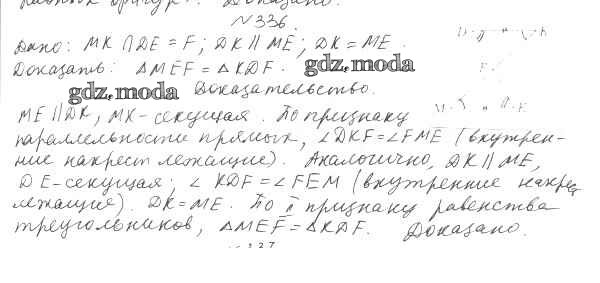 Доказано.
N 336.
Дано: MK ∩ DE = F; DK ∥ ME; DK = ME.
Доказать: △MEF = △KDF. gdz.moda
gdz.moda Доказательство.
ME ∥ DK, MK - секущая. По признаку
параллельности прямых, ∠DKF = ∠FME (внутрен-
ние накрест лежащие). Аналогично, DK ∥ ME,
DE - секущая; ∠KDF = ∠FEM (внутренние накрес
лежащие). DK = ME. По II признаку равенства
треугольников, △MEF = △KDF. Доказано.